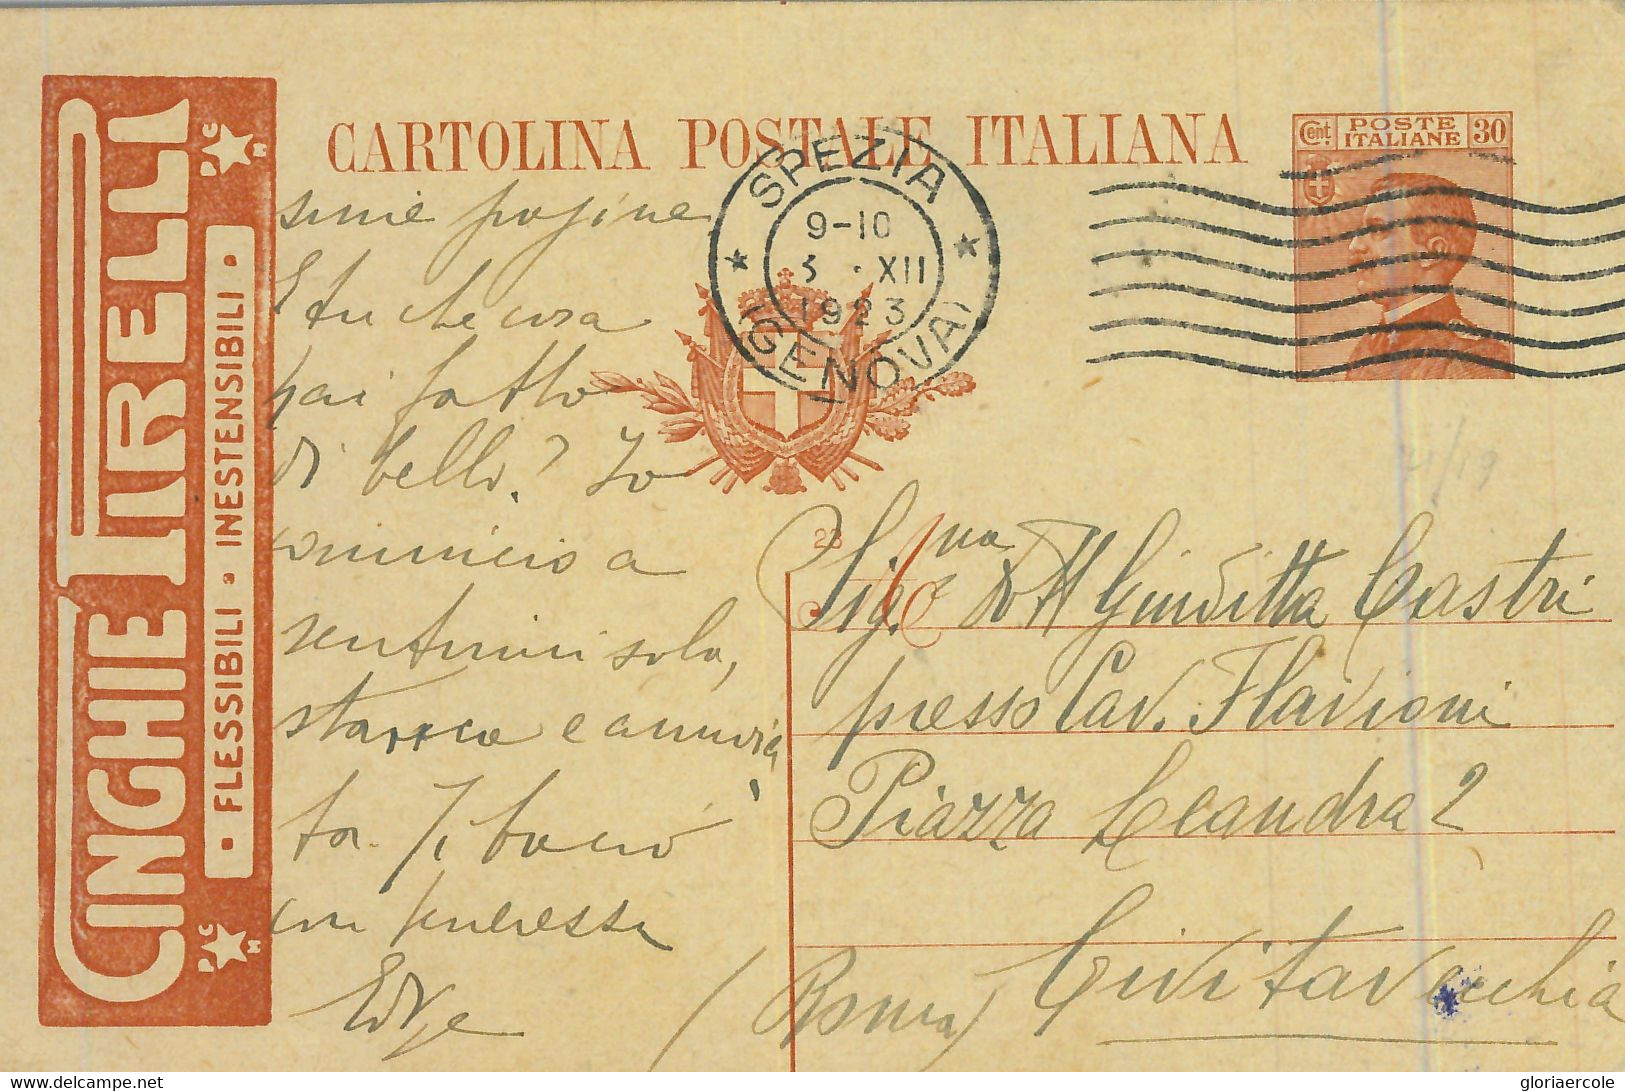 CARTOLINA POSTALE ITALIANA
Cent. POSTE ITALIANE 30
SPEZIA
9-10
3 · XII
1923
(GENOVA)
CINGHIE PIRELLI
· FLESSIBILI · INESTENSIBILI ·
P C M
P C M
pagine
E tu che cosa
hai fatto
di bello? Io
comincio a
sentirmi sola,
stanca e annoia
ta. Ti bacio
con tenerezza
23
Sig.na Giuditta Castri
presso Cav. Flavioni
Piazza Leandra 2
(Roma) Civitavecchia
delcampe.net
gloriaercole